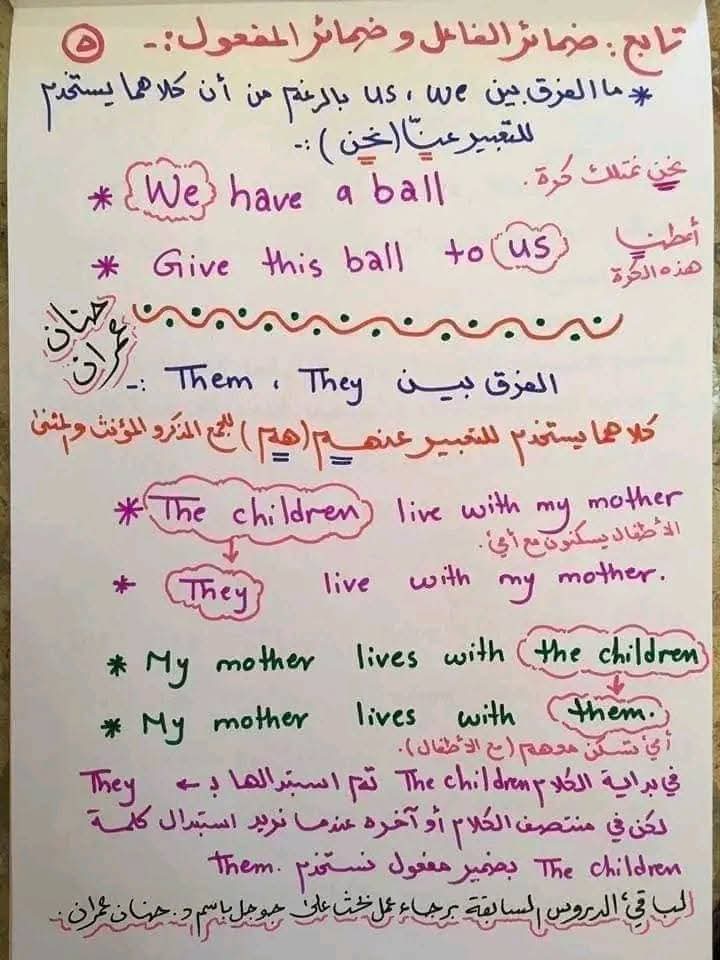 تابع: ضمائر الفاعل و ضمائر المفعول :- ٥
* ما الفرق بين us ، we بالرغم من أن كلاهما يستخدم
للتعبير عنّا (نحن) :-
* We have a ball
نحن نمتلك كرة.
* Give this ball to us
أعطنا
هذه الكرة
حنان
عمران
الفرق بين Them ، They :-
كلاهما يستخدم للتعبير عنهم (هم) للجمع المذكر و المؤنث والمثنى
* The children live with my mother
الأطفال يسكنون مع أمي.
* They live with my mother.
* My mother lives with the children
* My mother lives with them.
أمي تسكن معهم (مع الأطفال).
في بداية الكلام The children تم استبدالها بـ ← They
لكن في منتصف الكلام أو آخره عندما نريد استبدال كلمة
The children بضمير مفعول نستخدم them.
لباقي الدروس السابقة برجاء عمل بحث على جوجل باسم د. حنان عمران.